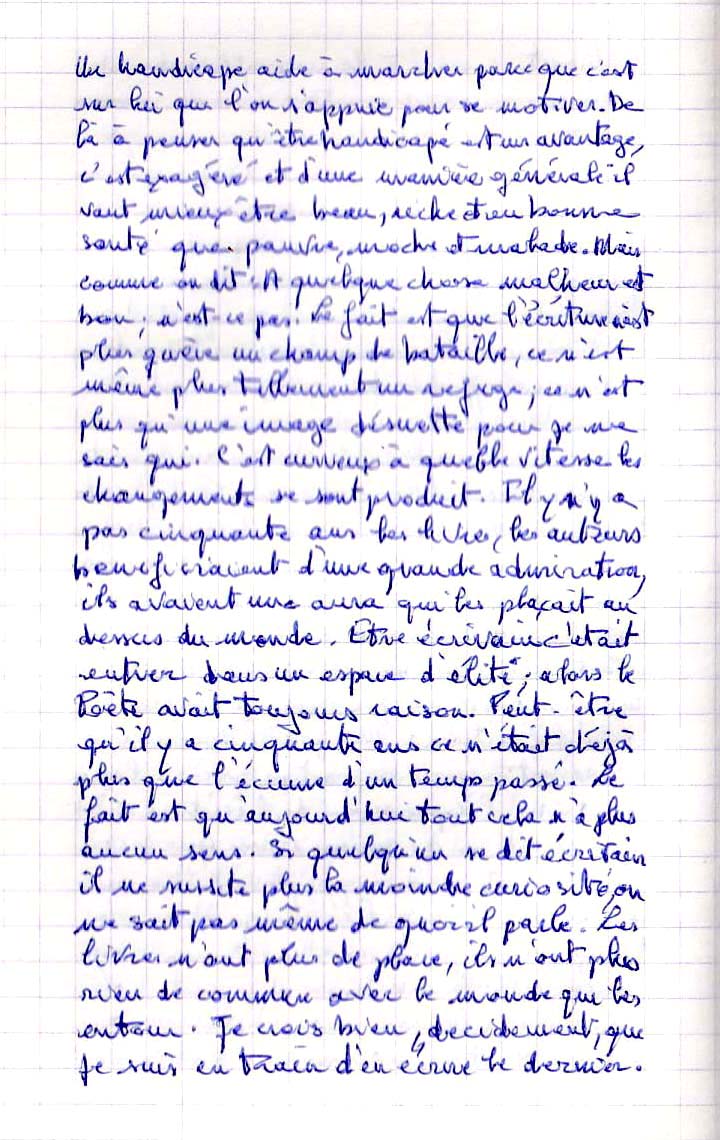 Un handicape aide à marcher parce que c'est
sur lui que l'on s'appuie pour se motiver. De
là à penser qu'être handicapé est un avantage,
c'est exagéré et d'une manière générale il
vaut mieux être beau, riche et en bonne
santé que pauvre, moche et malade. Mais
comme on dit : A quelque chose malheur est
bon ; n'est-ce pas. Le fait est que l'écriture n'est
plus guère un champ de bataille, ce n'est
même plus tellement un refuge ; ce n'est
plus qu'une image désuette pour je ne
sais qui. C'est curieux à quelle vitesse les
changements se sont produit. Il y n'y a
pas cinquante ans les livres, les auteurs
beneficiaient d'une grande admiration,
ils avaient une aura qui les plaçait au
dessus du monde. Etre écrivain c'était
entrer dans un espace d'élite ; alors le
Poète avait toujours raison. Peut-être
qu'il y a cinquante ans ce n'était déjà
plus que l'écume d'un temps passé. Le
fait est qu'aujourd'hui tout cela n'a plus
aucun sens. Si quelqu'un se dit écrivain
il ne suscite plus la moindre curiosité, on
ne sait pas même de quoi il parle. Les
livres n'ont plus de place, ils n'ont plus
rien de commun avec le monde qui les
entoure. Je crois bien, decidement, que
je suis en train d'en écrire le dernier.